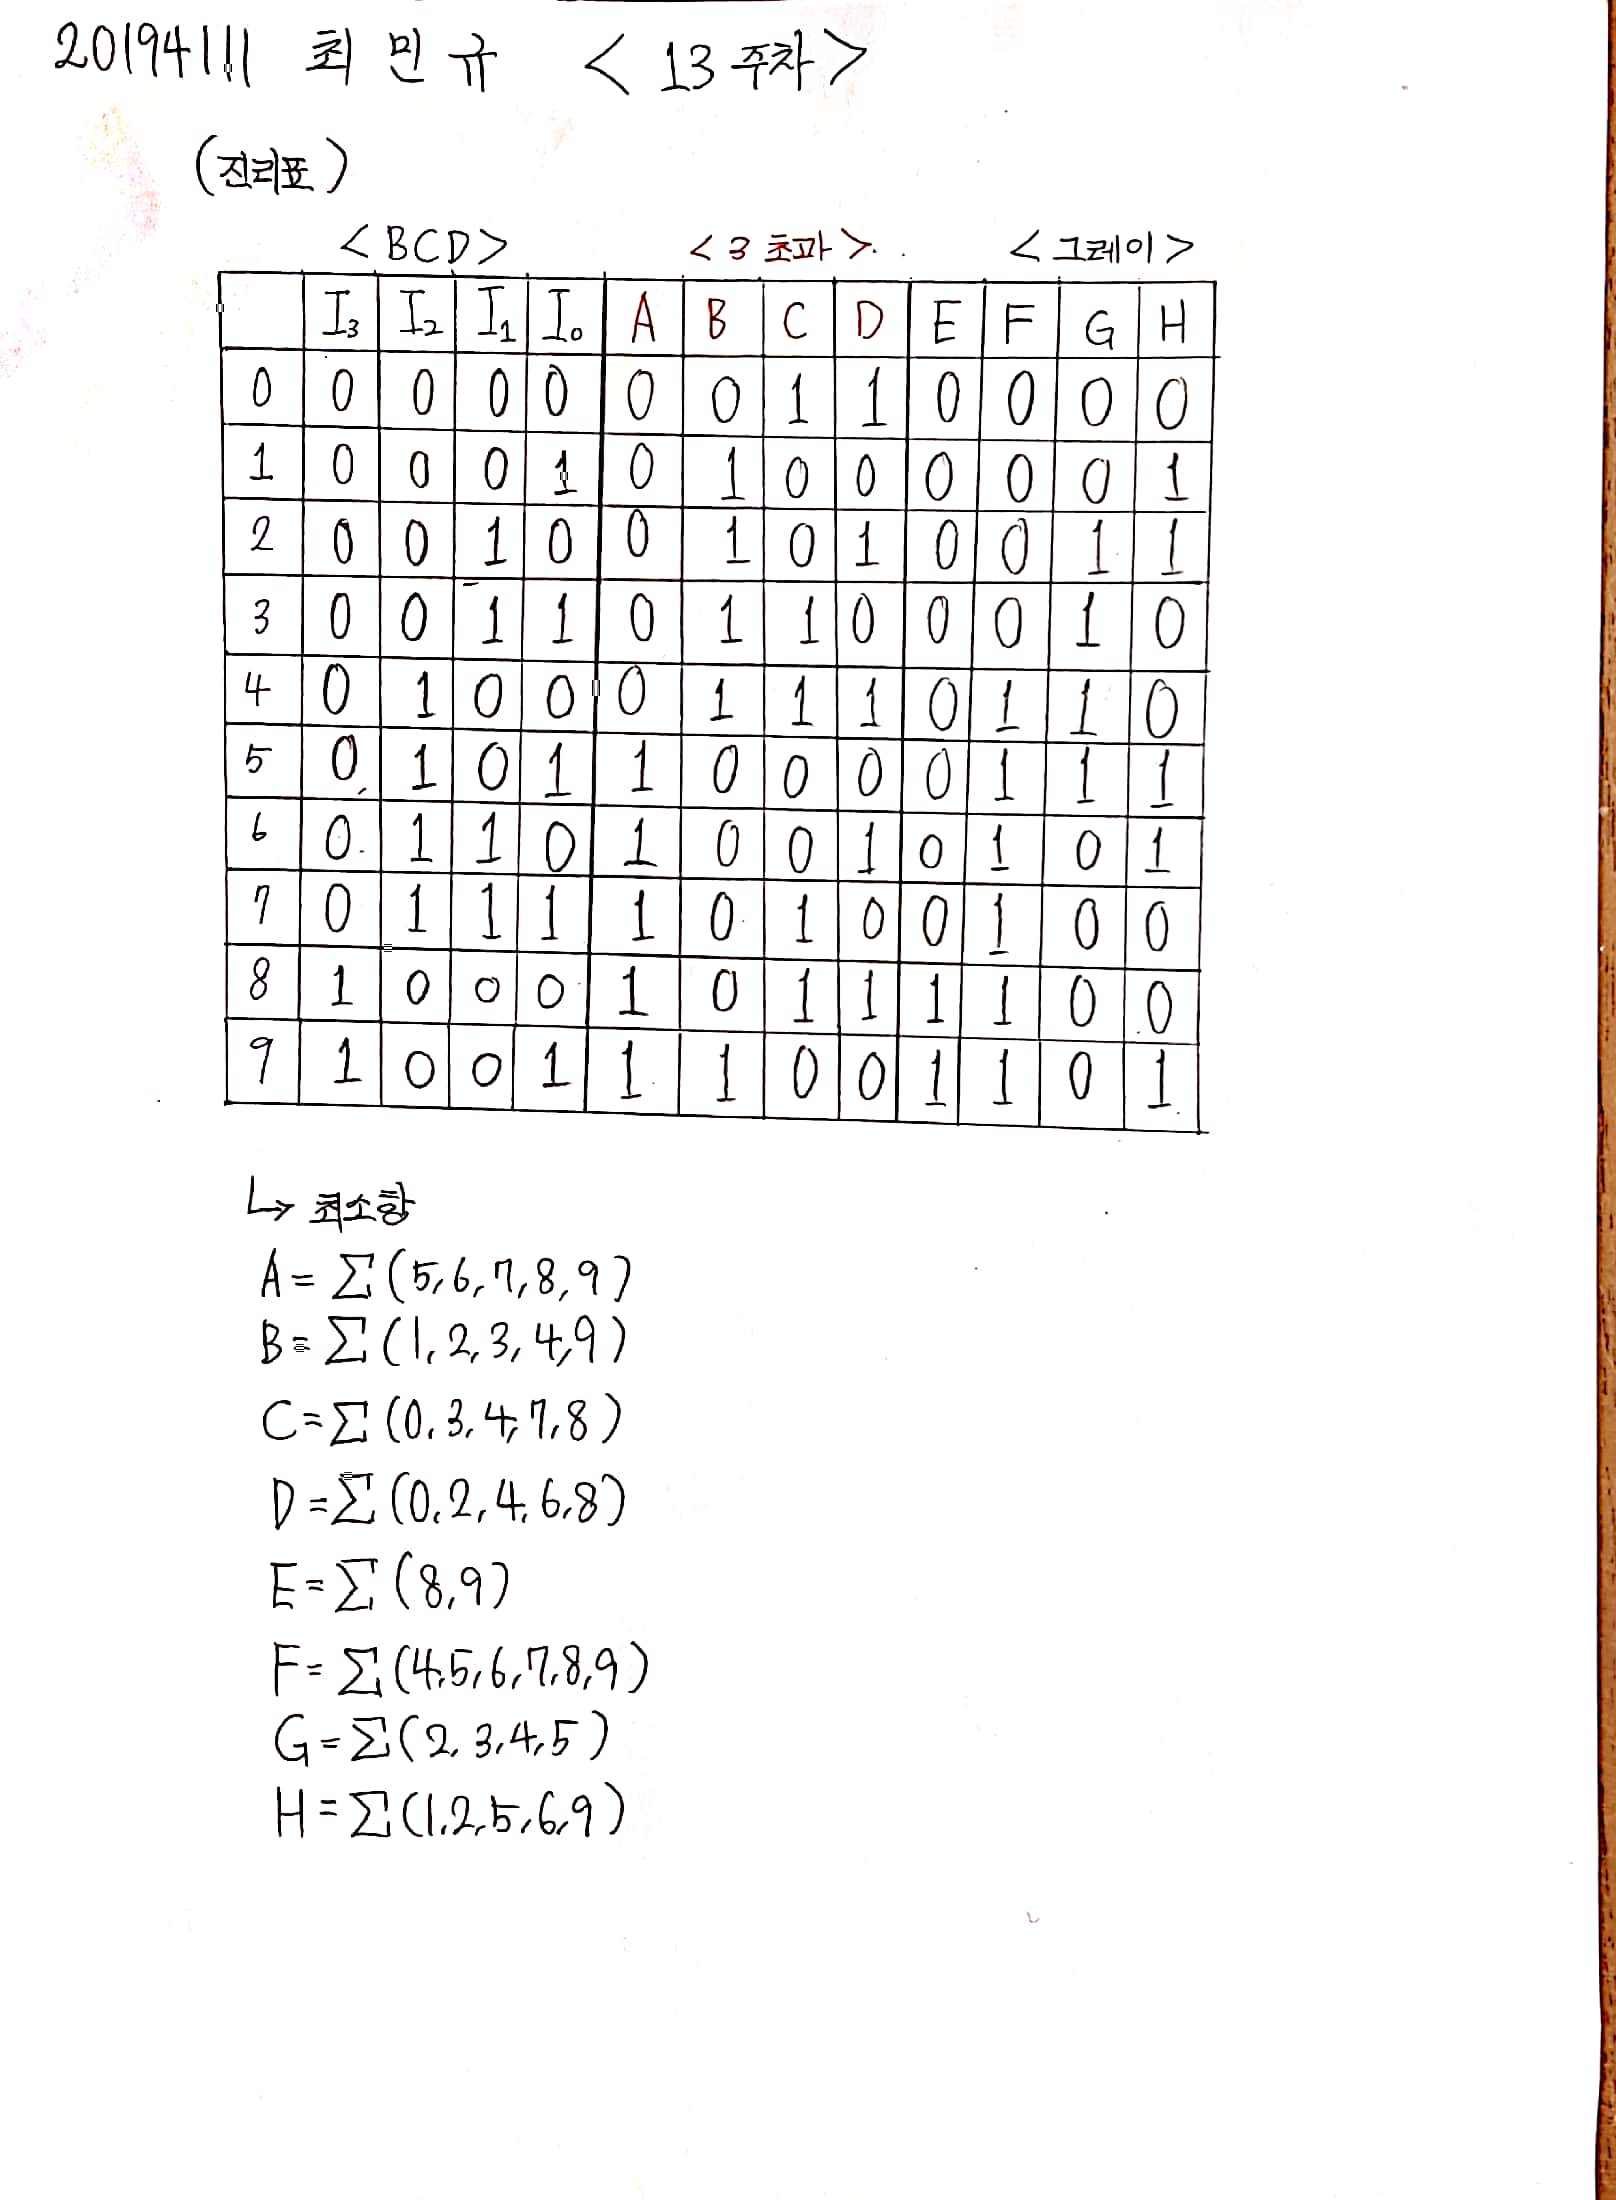 20194111 최민규 < 13주차 >
(진리표)
<BCD> <3 초과> <그레이>
I₃ I₂ I₁ I₀ A B C D E F G H
0 0 0 0 0 0 0 1 1 0 0 0 0
1 0 0 0 1 0 1 0 0 0 0 0 1
2 0 0 1 0 0 1 0 1 0 0 1 1
3 0 0 1 1 0 1 1 0 0 0 1 0
4 0 1 0 0 0 1 1 1 0 1 1 0
5 0 1 0 1 1 0 0 0 0 1 1 1
6 0 1 1 0 1 0 0 1 0 1 0 1
7 0 1 1 1 1 0 1 0 0 1 0 0
8 1 0 0 0 1 0 1 1 1 1 0 0
9 1 0 0 1 1 1 0 0 1 1 0 1
↳ 최소항
A = Σ(5,6,7,8,9)
B = Σ(1,2,3,4,9)
C = Σ(0,3,4,7,8)
D = Σ(0,2,4,6,8)
E = Σ(8,9)
F = Σ(4,5,6,7,8,9)
G = Σ(2,3,4,5)
H = Σ(1,2,5,6,9)